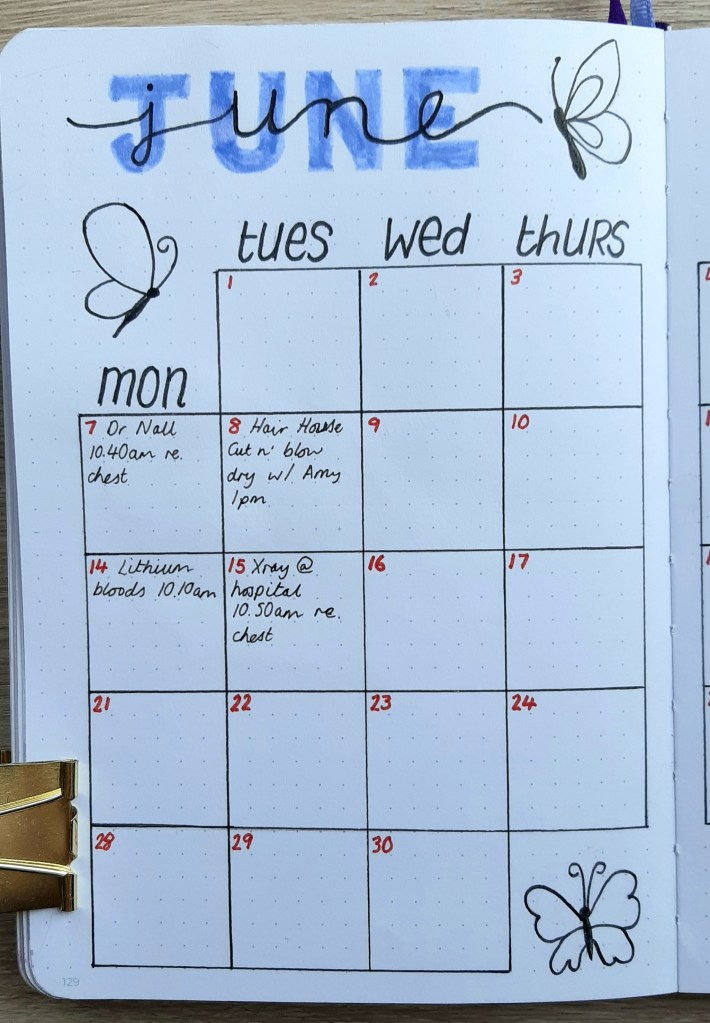 JUNE
june
tues wed thurs
1 2 3
mon
7 Dr Nall
10.40am re.
chest
8 Hair House
Cut n' blow
dry w/ Amy
1pm
9 10
14 Lithium
bloods 10.10am
15 Xray @
hospital
10.50am re.
chest
16 17
21 22 23 24
28 29 30
129